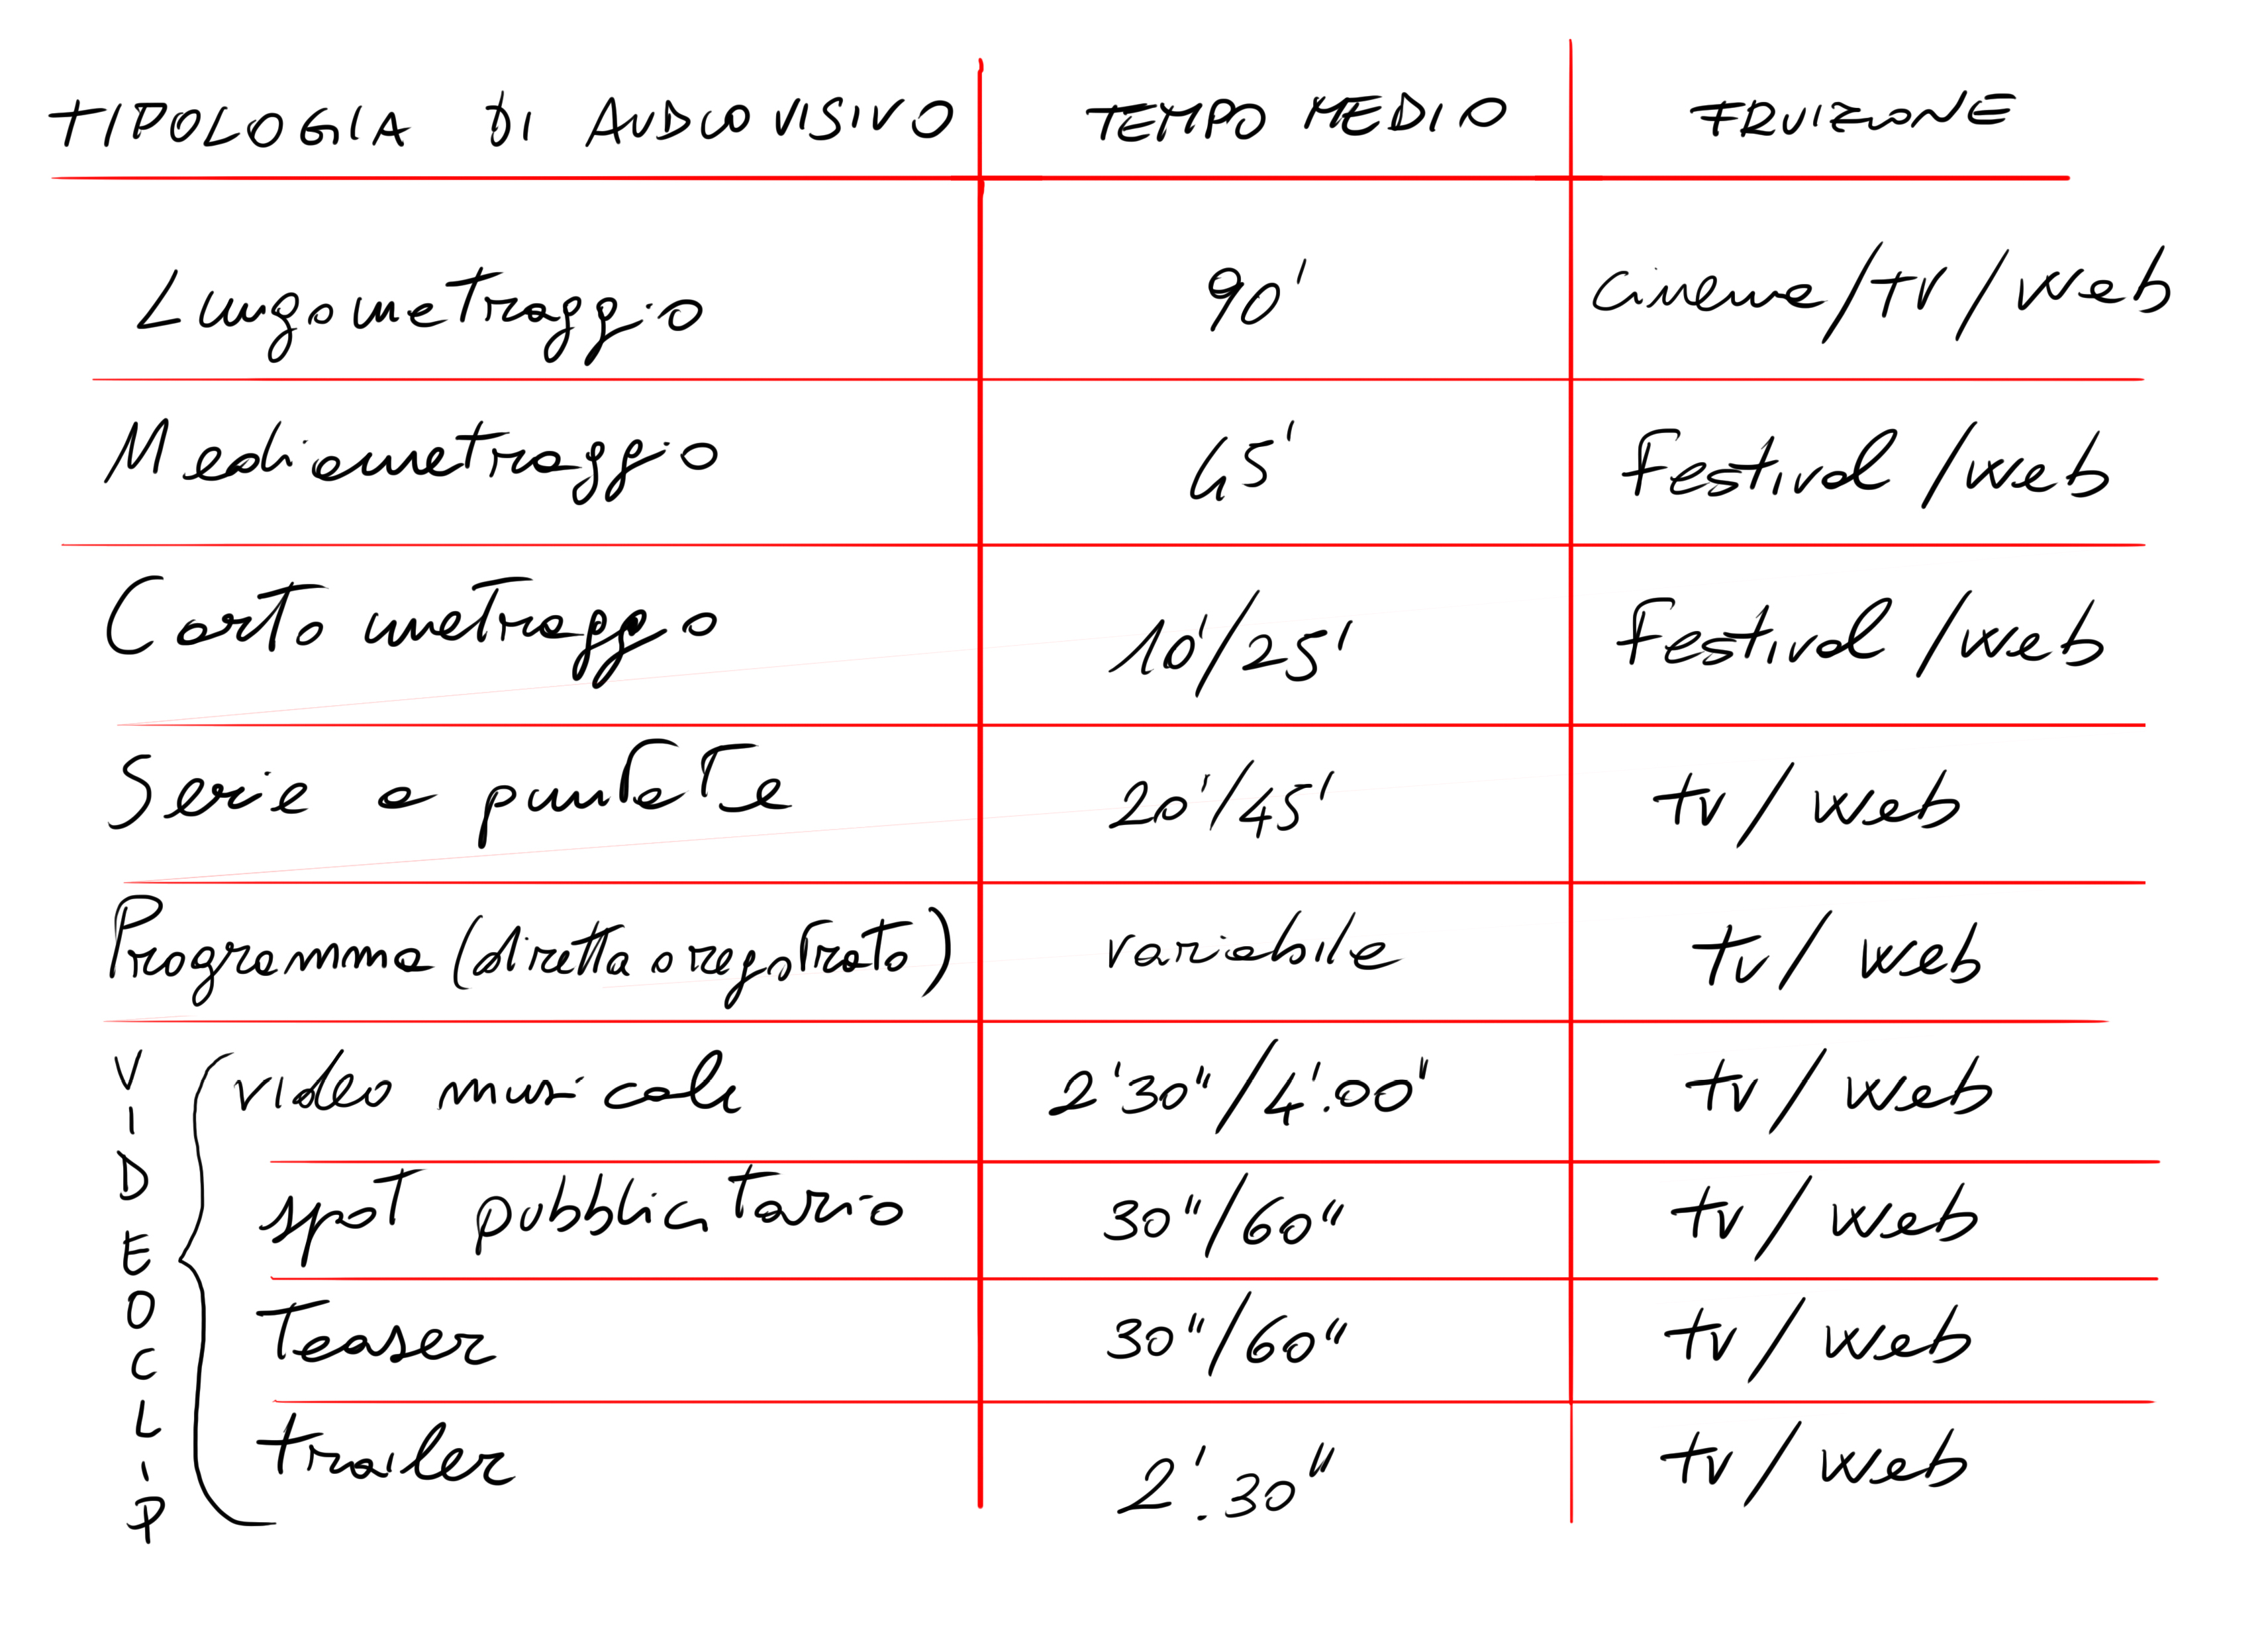 TIPOLOGIA DI AUDIOVISIVO TEMPO MEDIO FRUIZIONE
Lungometraggio 90' Cinema/TV/Web
Mediometraggio 45' Festival/Web
Cortometraggio 10'/25' Festival/Web
Serie a puntate 20'/45' tv/web
Programma (diretta o registrato) variabile tv/web
VIDEOCLIP
video musicale 2'30"/4'.00" tv/web
spot pubblicitario 30"/60" tv/web
Teaser 30"/60" tv/web
trailer 2'.30" tv/web